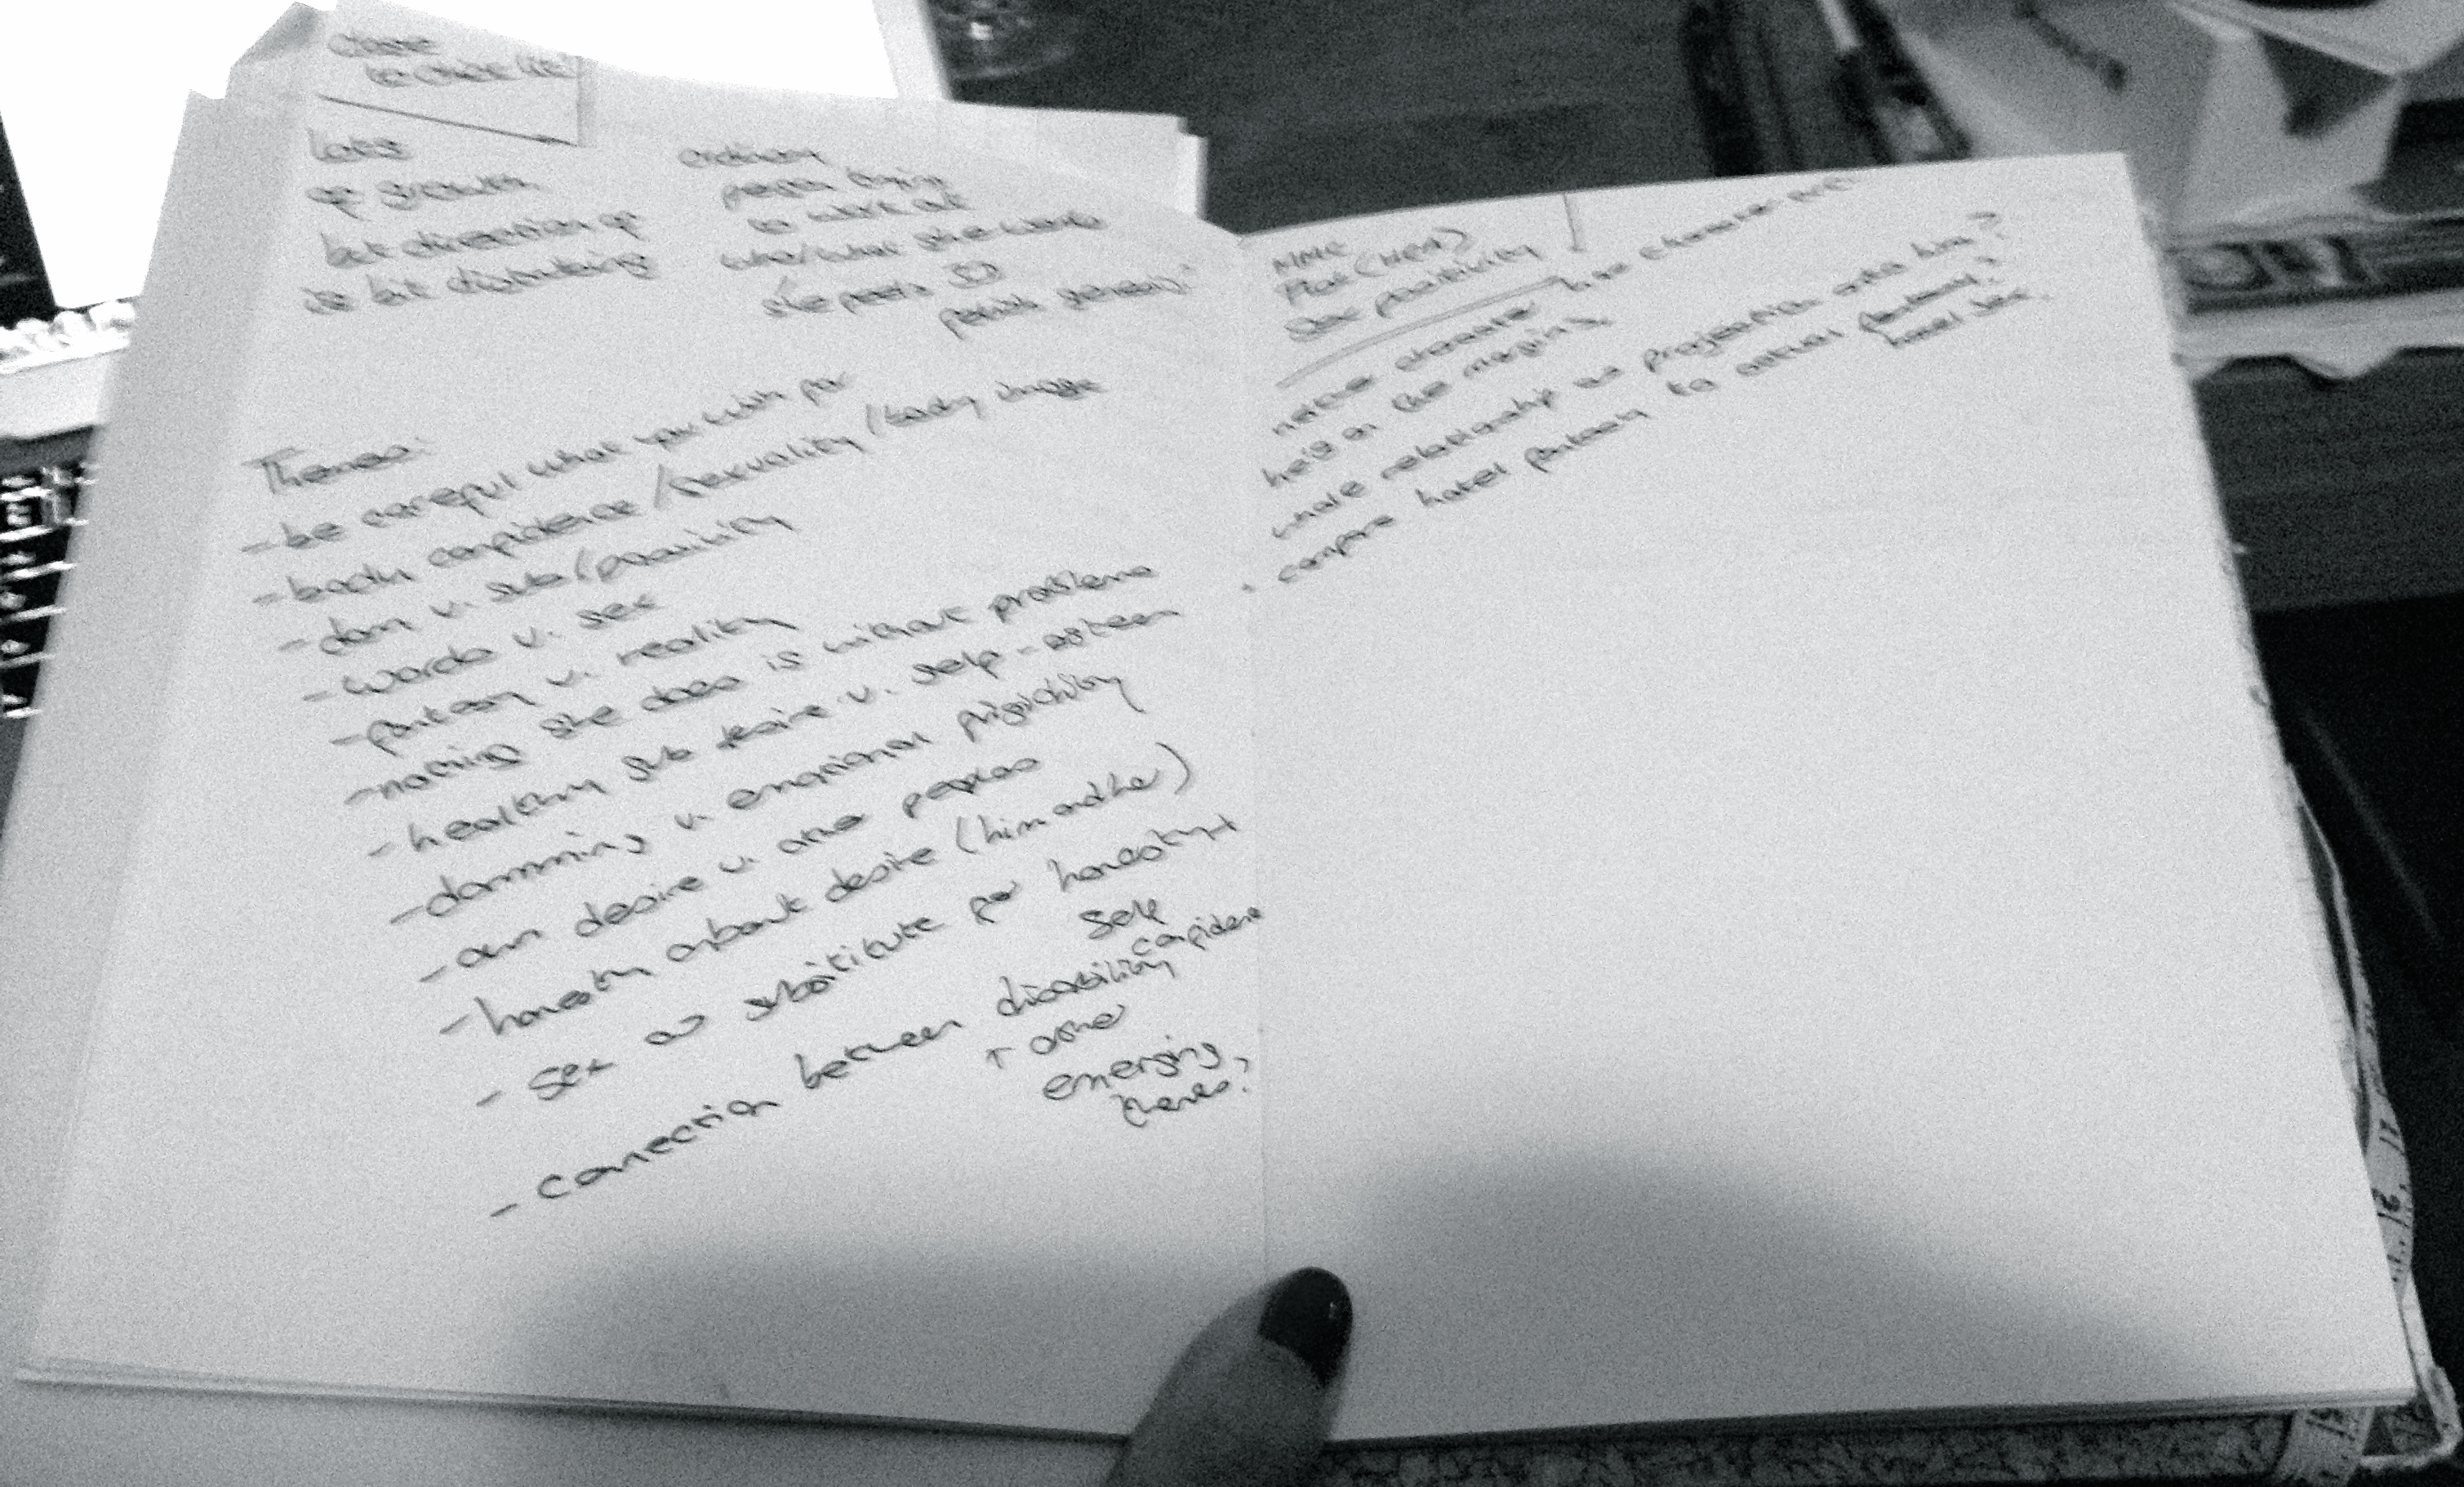 close
to chick lit
lots
of growth
but direction of
is bit disturbing
ordinary
person trying
to work out
who/what she wants
she feels so
Themes:
- be careful what you wish for
- body confidence / sexuality / body image
- dom v. sub / passivity
- words v. sex
- fantasy v. reality
- nothing she does is without problems
- healthy sub desire v. self-esteem
- domming v. emotional frigidity
- own desire v. other peoples
- honesty about desire (him and her)
- sex as substitute for honesty +
self
confidence
- connection between disability
↑ other
emerging
themes?
MMC
Plot (HEA)
Sex positivity
neither character has character
he's on the margins
whole relationship as projection onto him?
· compare hotel fantasy to actual fantasy?
hotel sex.